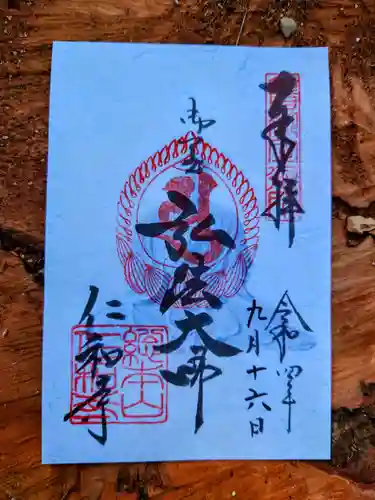 奉拝
令和四年
九月十六日
弘法大師
仁和寺
総本山
仁和寺